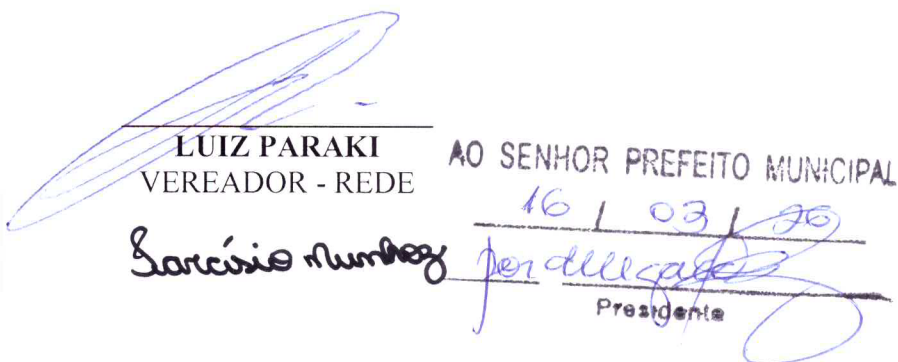 LUIZ PARAKI
VEREADOR - REDE
Tarcísio Munhoz
AO SENHOR PREFEITO MUNICIPAL
16 / 03 / 20
por delegação
Presidente